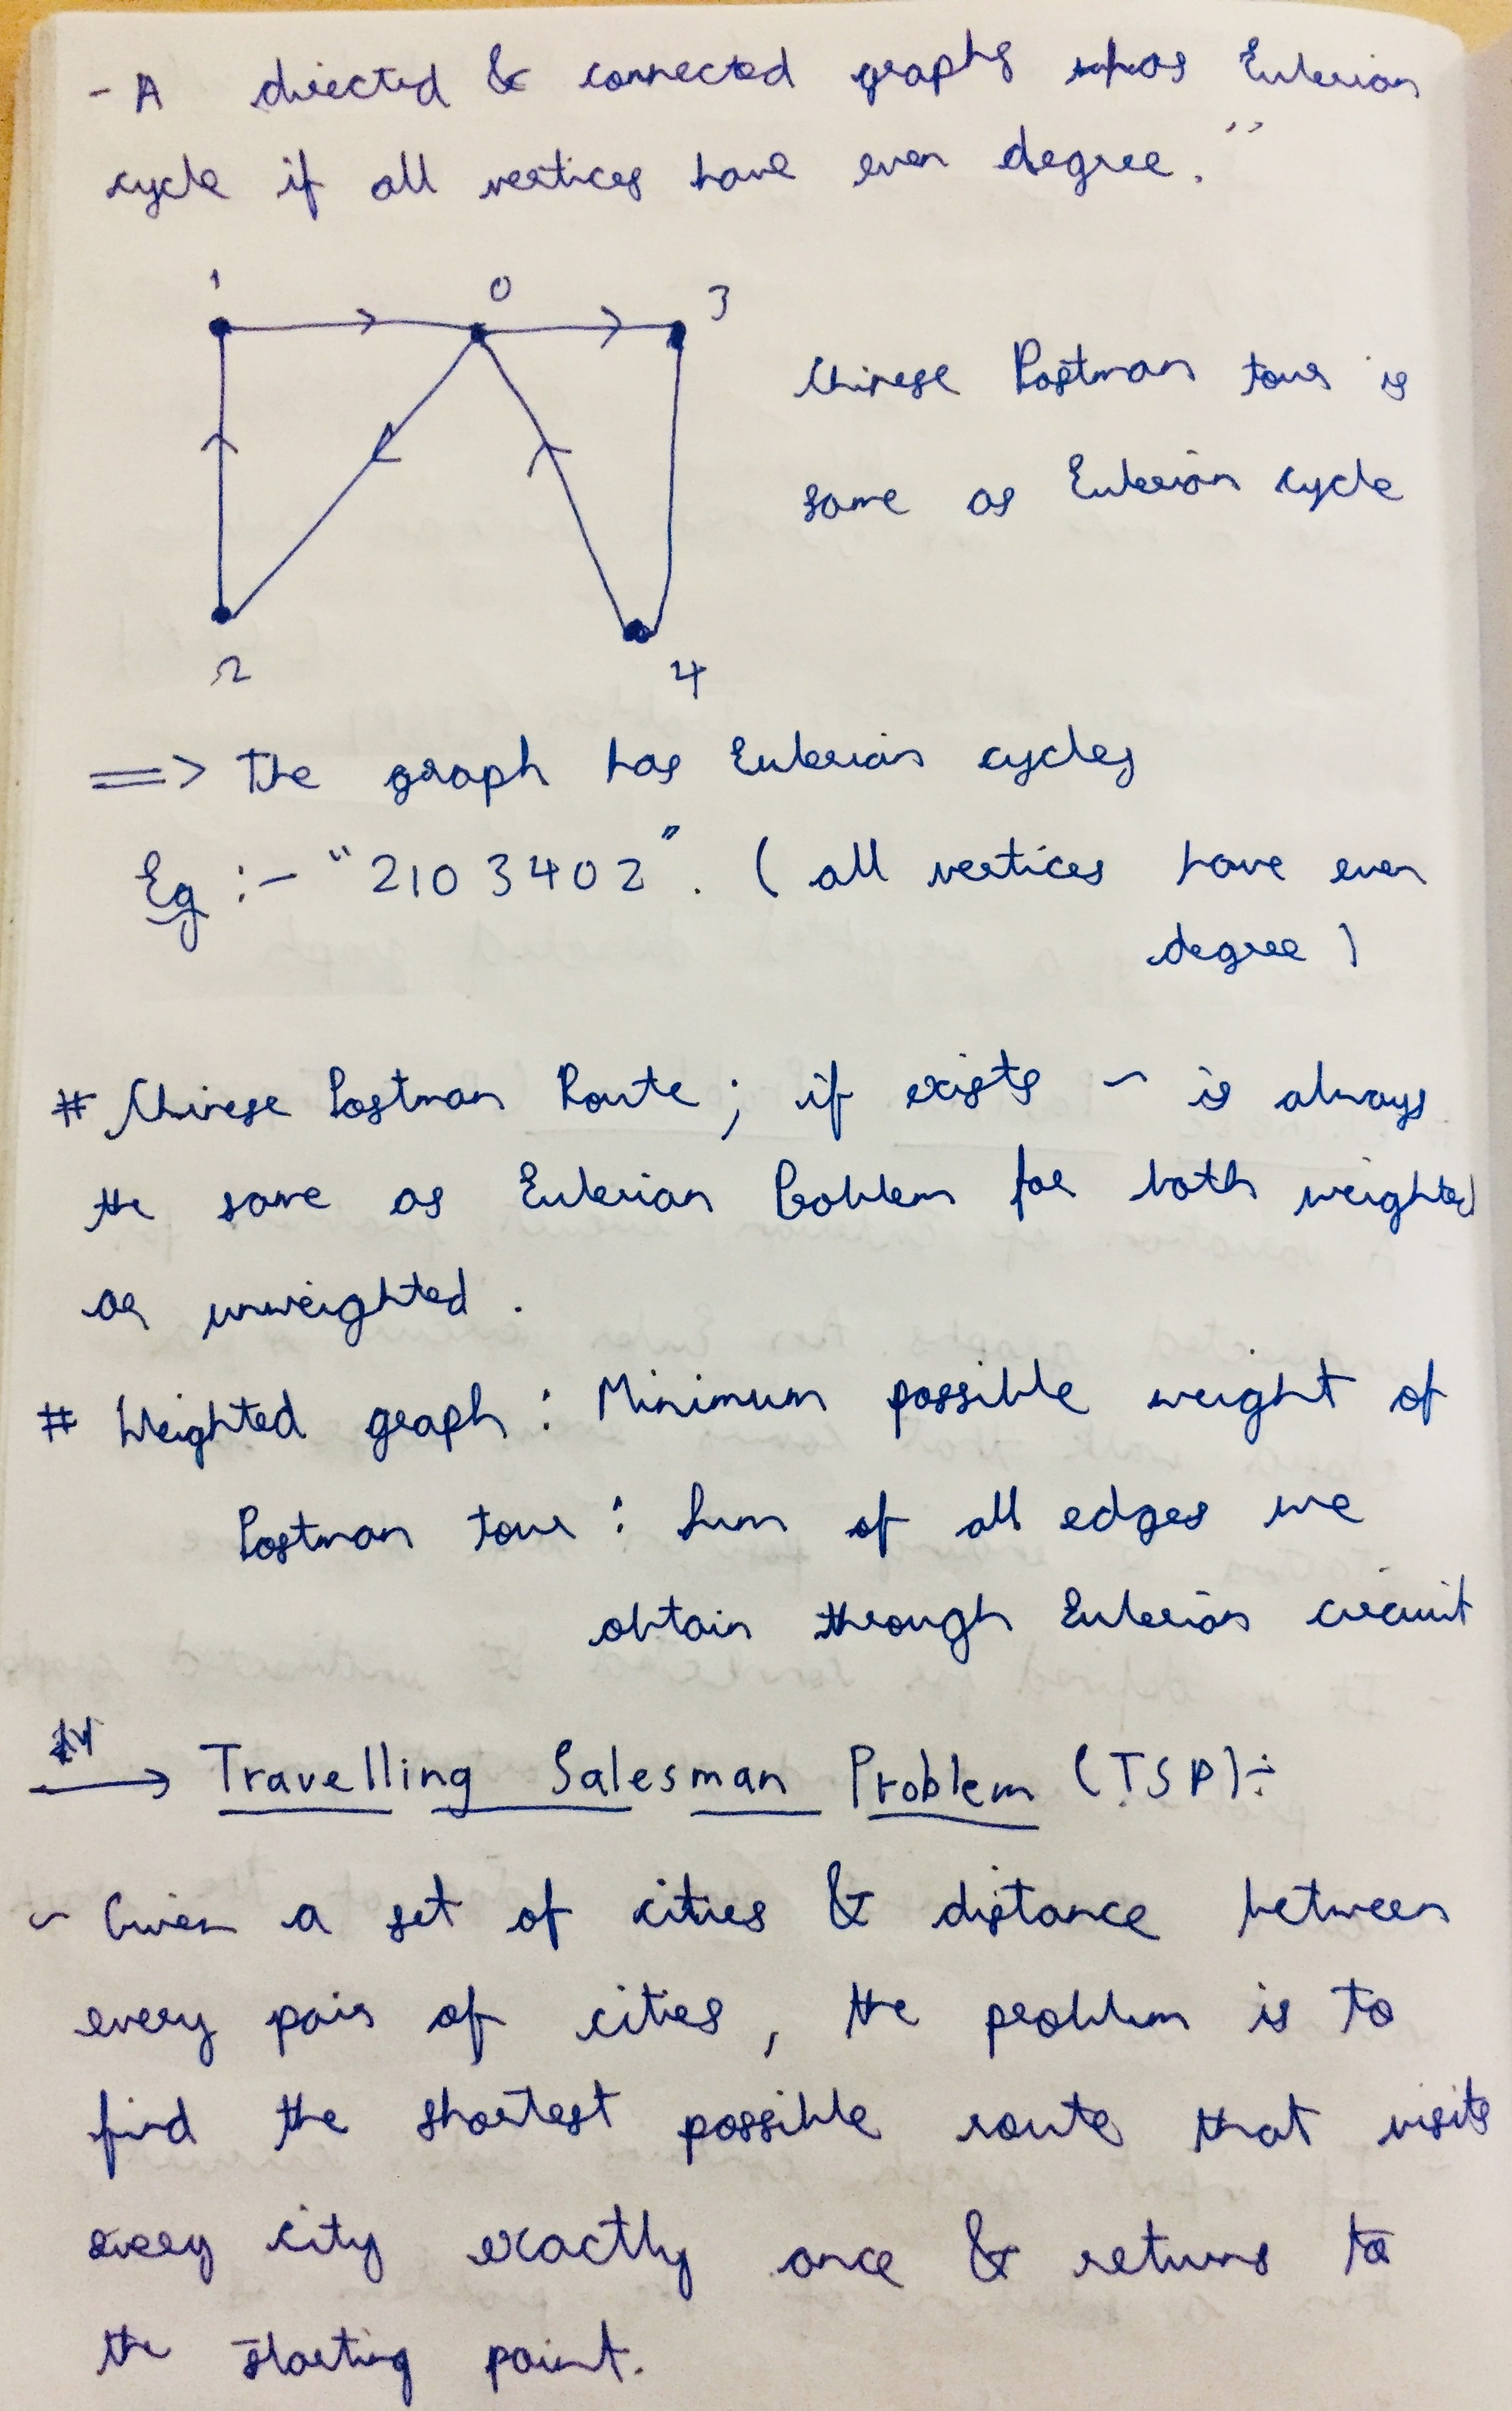 - A directed & connected graphs has Eulerian
cycle if all vertices have even degree."
1
0
3
Chinese Postman tour is
same as Eulerian cycle
2
4
=> The graph has Eulerian cycles
Eg :- "2103402". (all vertices have even
degree)
# Chinese Postman Route; if exists - is always
the same as Eulerian Problem for both weighted
or unweighted.
# Weighted graph: Minimum possible weight of
Postman tour: Sum of all edges we
obtain through Eulerian circuit
→ Travelling Salesman Problem (TSP):-
- Given a set of cities & distance between
every pair of cities, the problem is to
find the shortest possible route that visits
every city exactly once & returns to
the starting point.